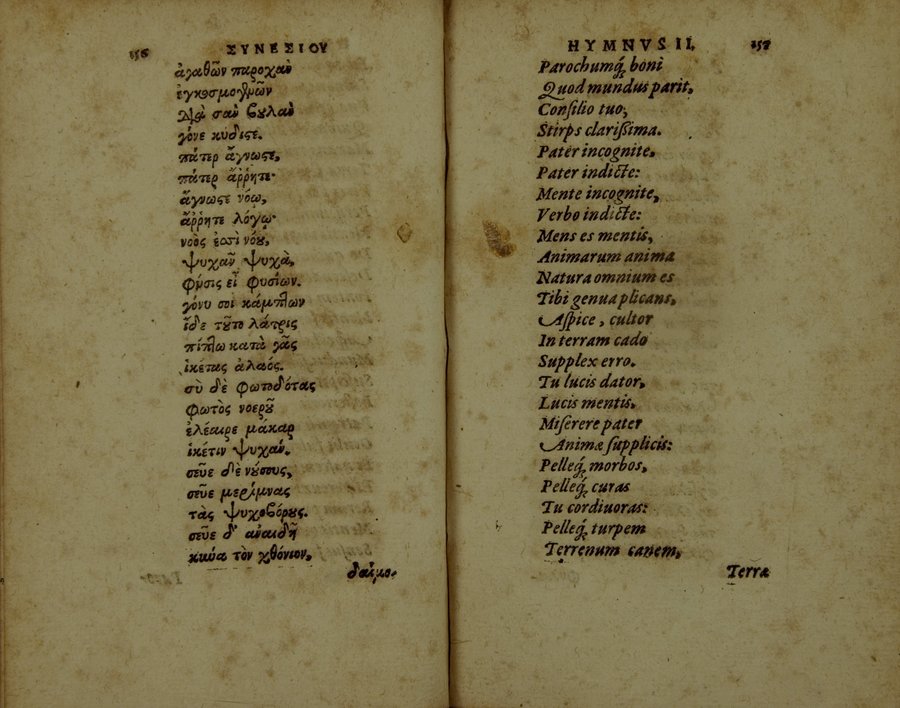 156
ΣΥΝΕΣΙΟΥ
ἀγαθῶν παροχὰν
ἐγκοσμογόνων
σὰν βυλὰν
γόνε κύδιστε.
πάτερ ἄγνωστε,
πάτερ ἄῤῥητε·
ἄγνωστε νόῳ,
ἄῤῥητε λόγῳ·
νοὸς ἐσσὶ νόου,
ψυχᾶν ψυχὰ,
φύσις εἶ φυσίων.
γόνυ σοὶ κάμπτων
ἴδε τοῦτο λάτρις
πίπτω κατὰ γᾶς
ἱκέτας ἀλαός.
σὺ δὲ φωτοδότας
φωτὸς νοεροῦ
ἐλέαιρε μάκαρ
ἱκέτιν ψυχάν.
σεῦε δὲ νούσους,
σεῦε μερίμνας
τὰς ψυχοβόρους.
σεῦε δ' ἀναιδῆ
κύνα τὸν χθόνιον,
δαίμο-
HYMNVS II.
157
Parochumq́; boni
Quod mundus parit,
Consilio tuo,
Stirps clarissima.
Pater incognite,
Pater indicte:
Mente incognite,
Verbo indicte:
Mens es mentis,
Animarum anima
Natura omnium es
Tibi genua plicans,
Aspice, cultor
In terram cado
Supplex erro.
Tu lucis dator,
Lucis mentis,
Miserere pater
Animæ supplicis:
Pelleq́; morbos,
Pelleq́; curas
Tu cordiuoras:
Pelleq́; turpem
Terrenum canem,
Terræ